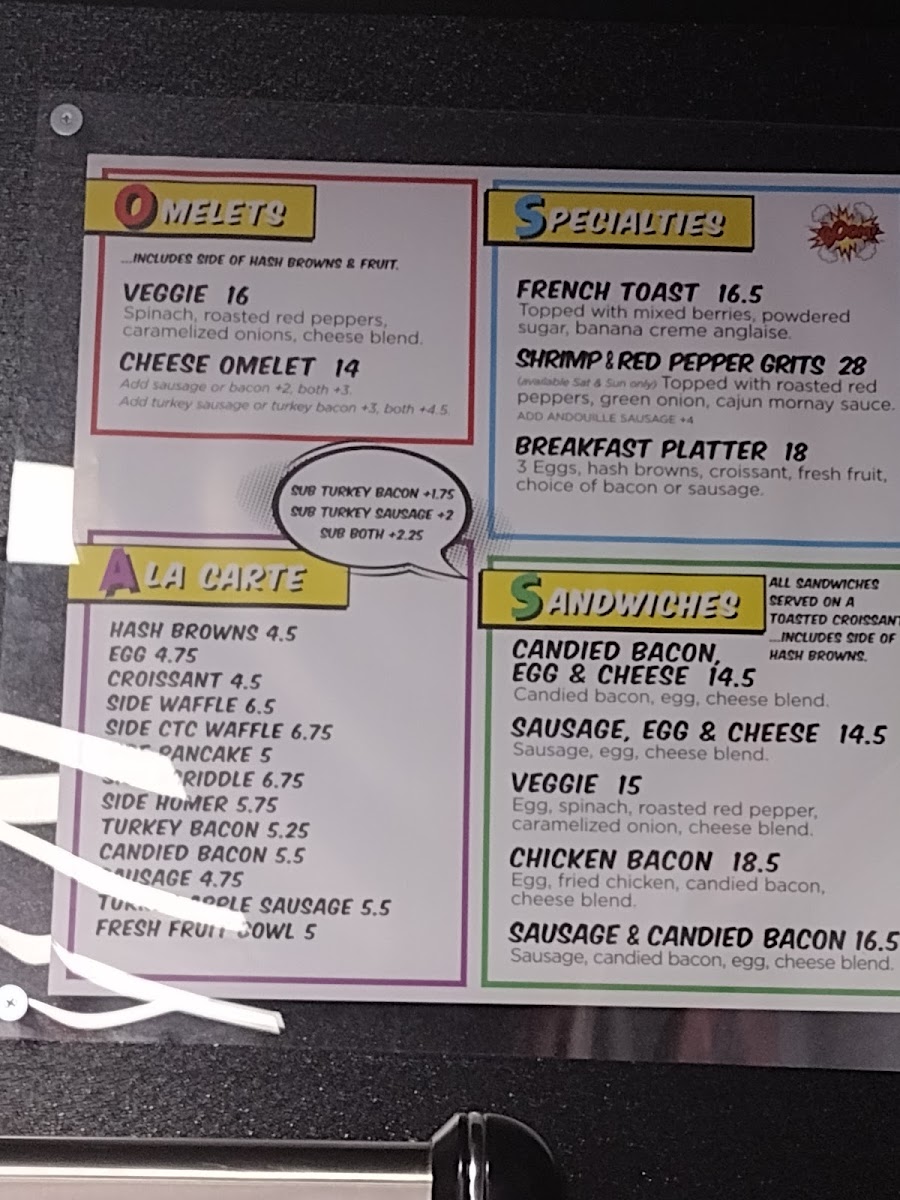 OMELETS
...INCLUDES SIDE OF HASH BROWNS & FRUIT.
VEGGIE 16
Spinach, roasted red peppers,
caramelized onions, cheese blend.
CHEESE OMELET 14
Add sausage or bacon +2, both +3.
Add turkey sausage or turkey bacon +3, both +4.5.
SUB TURKEY BACON +1.75
SUB TURKEY SAUSAGE +2
SUB BOTH +2.25
A LA CARTE
HASH BROWNS 4.5
EGG 4.75
CROISSANT 4.5
SIDE WAFFLE 6.5
SIDE CTC WAFFLE 6.75
PANCAKE 5
6.75
SIDE HOMER 5.75
TURKEY BACON 5.25
CANDIED BACON 5.5
SAUSAGE 4.75
SAUSAGE 5.5
FRESH FRUIT BOWL 5
SPECIALTIES
BOOM!
FRENCH TOAST 16.5
Topped with mixed berries, powdered
sugar, banana creme anglaise.
SHRIMP & RED PEPPER GRITS 28
(available Sat & Sun only) Topped with roasted red
peppers, green onion, cajun mornay sauce.
ADD ANDOUILLE SAUSAGE +4
BREAKFAST PLATTER 18
3 Eggs, hash browns, croissant, fresh fruit,
choice of bacon or sausage.
SANDWICHES
ALL SANDWICHES
SERVED ON A
TOASTED CROISSANT
...INCLUDES SIDE OF
HASH BROWNS.
CANDIED BACON,
EGG & CHEESE 14.5
Candied bacon, egg, cheese blend.
SAUSAGE, EGG & CHEESE 14.5
Sausage, egg, cheese blend.
VEGGIE 15
Egg, spinach, roasted red pepper,
caramelized onion, cheese blend.
CHICKEN BACON 18.5
Egg, fried chicken, candied bacon,
cheese blend.
SAUSAGE & CANDIED BACON 16.5
Sausage, candied bacon, egg, cheese blend.